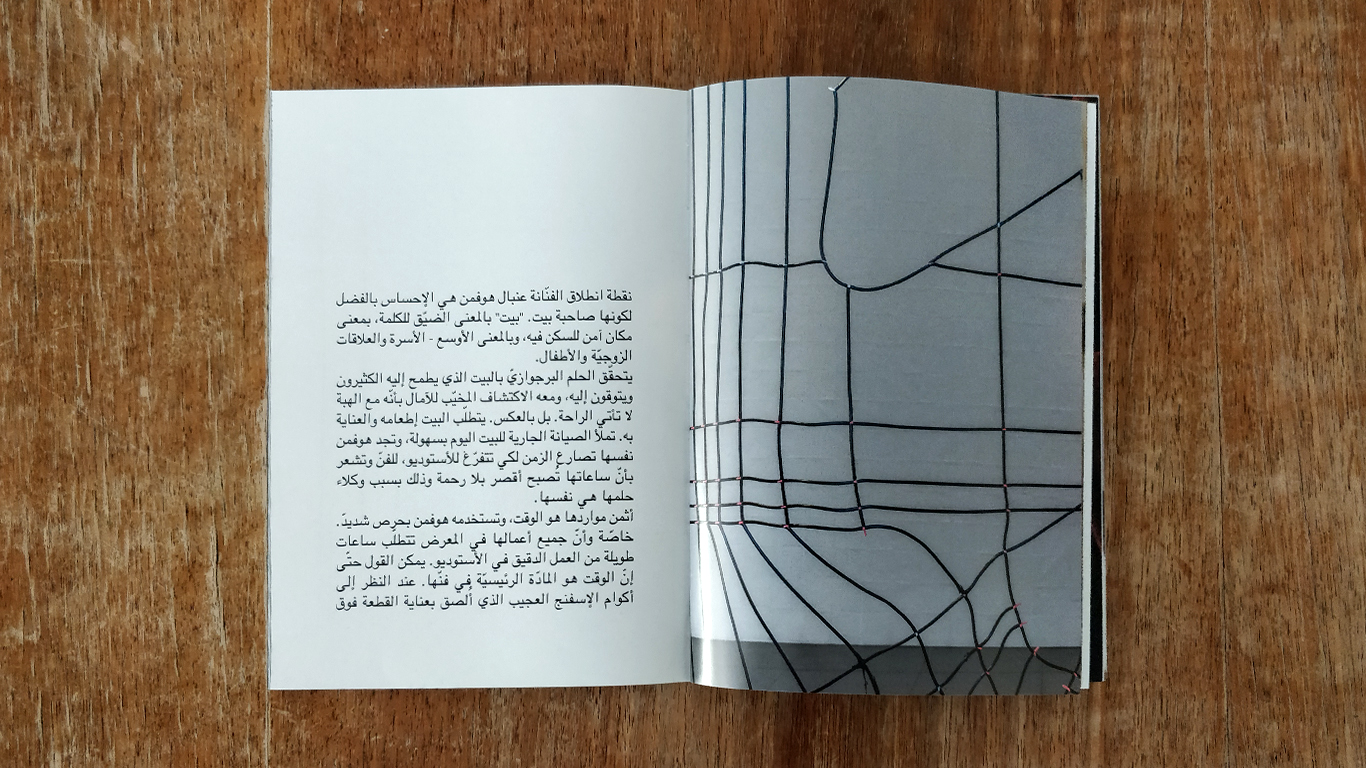 نقطة انطلاق الفنّانة عنبال هوفمن هي الإحساس بالفضل
لكونها صاحبة بيت. "بيت" بالمعنى الضيّق للكلمة، بمعنى
مكان آمن للسكن فيه، وبالمعنى الأوسع - الأسرة والعلاقات
الزوجيّة والأطفال.
يتحقّق الحلم البرجوازيّ بالبيت الذي يطمح إليه الكثيرون
ويتوقون إليه، ومعه الاكتشاف المخيّب للآمال بأنّه مع الهبة
لا تأتي الراحة. بل بالعكس. يتطلّب البيت إطعامه والعناية
به. تملأ الصيانة الجارية للبيت اليوم بسهولة، وتجد هوفمن
نفسها تصارع الزمن لكي تتفرّغ للأستوديو، للفنّ وتشعر
بأنّ ساعاتها تُصبح أقصر بلا رحمة وذلك بسبب وكلاء
حلمها هي نفسها.
أثمن مواردها هو الوقت، وتستخدمه هوفمن بحرص شديدّ.
خاصّة وأنّ جميع أعمالها في المعرض تتطلّب ساعات
طويلة من العمل الدقيق في الأستوديو. يمكن القول حتّى
إنّ الوقت هو المادّة الرئيسيّة في فنّها. عند النظر إلى
أكوام الإسفنج العجيب الذي أُلصق بعناية القطعة فوق